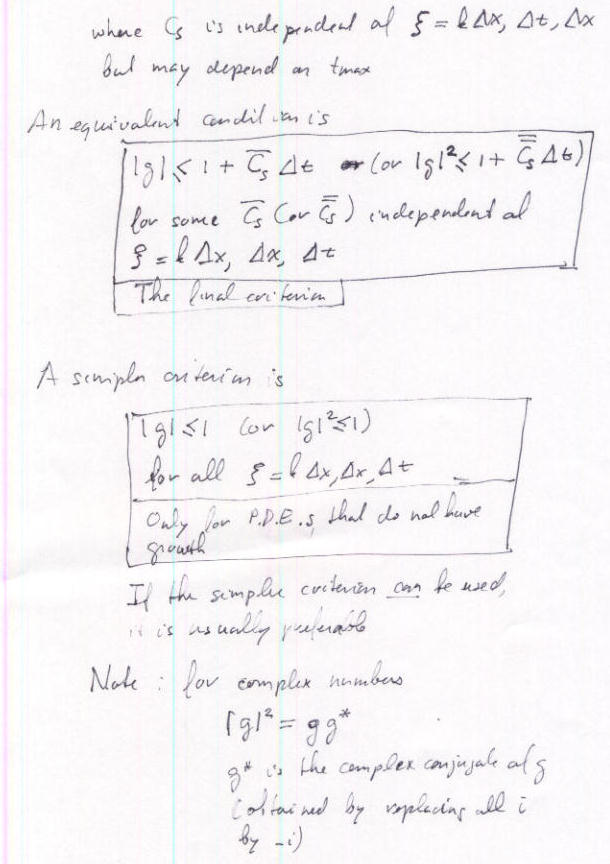 where Cs is independent of ξ = kΔx, Δt, Δx
but may depend on tmax
An equivalent condition is
|g| ≤ 1 + C̅s Δt (or |g|² ≤ 1 + C̿s Δt)
for some C̅s (or C̿s) independent of
ξ = kΔx, Δx, Δt
The final criterion
A simpler criterion is
|g| ≤ 1 (or |g|² ≤ 1)
for all ξ = kΔx, Δx, Δt
Only for P.D.E.s that do not have
growth
If the simpler criterion can be used,
it is usually preferable
Note : for complex numbers
|g|² = g g*
g* is the complex conjugate of g
(obtained by replacing all i
by -i)